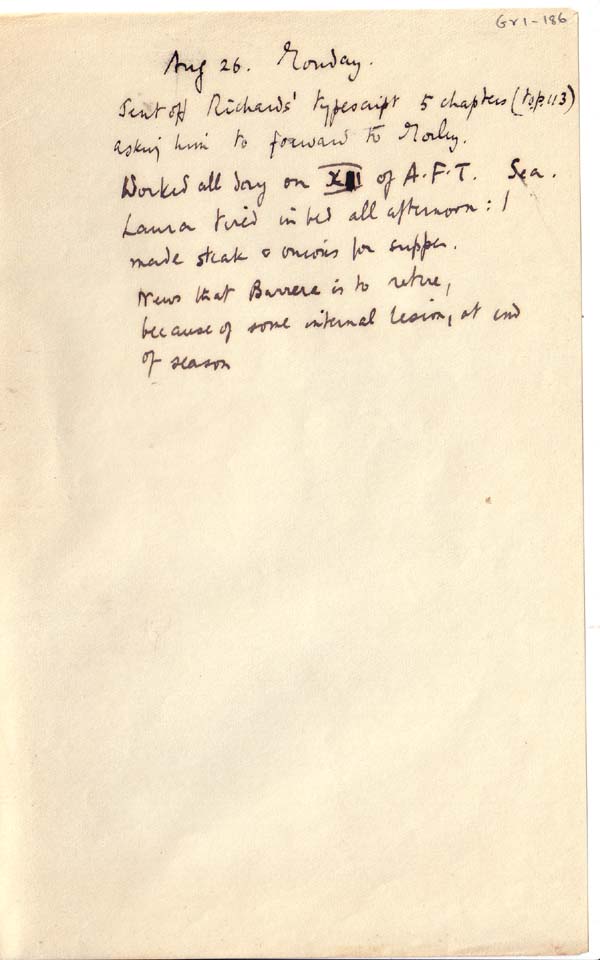 Gr1-186
Aug 26. Monday.
Sent off Richards' typescript 5 chapters (to p. 113)
asking him to forward to Morley.
Worked all day on of A.F.T. Sea.
Laura tired in bed all afternoon: I
made steak & onions for supper.
News that Barrere is to retire,
because of some internal lesion, at end
of season